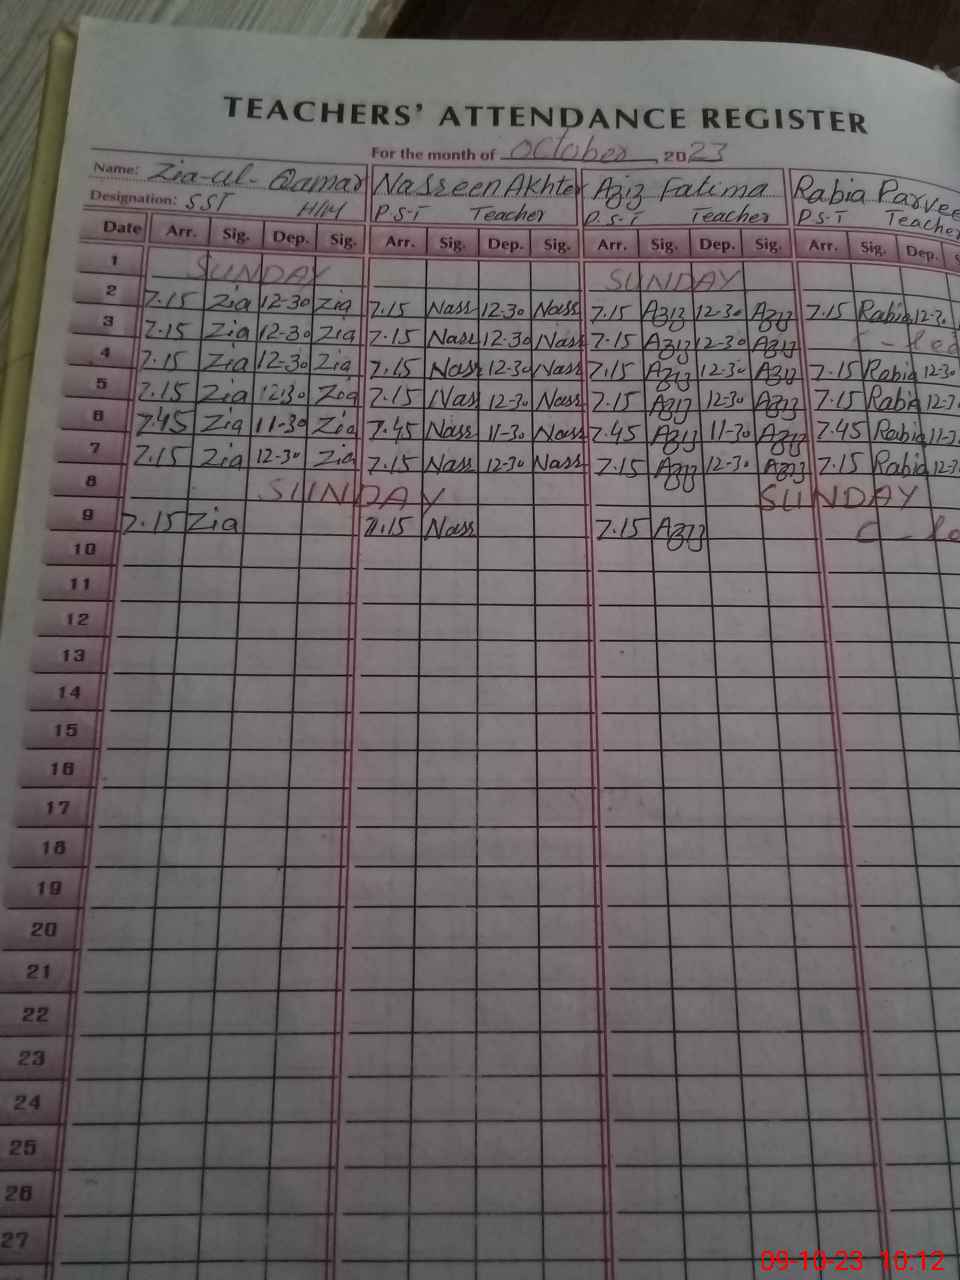 TEACHERS' ATTENDANCE REGISTER
For the month of October 2023
Name: Zia-ul-Qamar Nasreen Akhter Aziz Fatima Rabia Parvee
Designation: SST H/M P.S.T Teacher P.S.T Teacher P.S.T Teacher
Date Arr. Sig. Dep. Sig. Arr. Sig. Dep. Sig. Arr. Sig. Dep. Sig. Arr. Sig. Dep. S
1 SUNDAY SUNDAY
2 7.15 Zia 12-30 Zia 7.15 Nass 12-30 Nass 7.15 Aziz 12-30 Aziz 7.15 Rabia 12-30
3 7.15 Zia 12-30 Zia 7.15 Nass 12-30 Nass 7.15 Aziz 12-30 Aziz
4 7.15 Zia 12-30 Zia 7.15 Nass 12-30 Nass 7.15 Aziz 12-30 Aziz 7.15 Rabia 12-30
5 7.15 Zia 12-30 Zia 7.15 Nass 12-30 Nass 7.15 Aziz 12-30 Aziz 7.15 Rabia 12-3
6 7.45 Zia 11-30 Zia 7.45 Nass 11-30 Nass 7.45 Aziz 11-30 Aziz 7.45 Rabia 11-3
7 7.15 Zia 12-30 Zia 7.15 Nass 12-30 Nass 7.15 Aziz 12-30 Aziz 7.15 Rabia 12-3
8 SUNDAY SUNDAY
9 7.15 Zia 7.15 Nass 7.15 Aziz
10
11
12
13
14
15
16
17
18
19
20
21
22
23
24
25
26
27
09-10-23 10:12